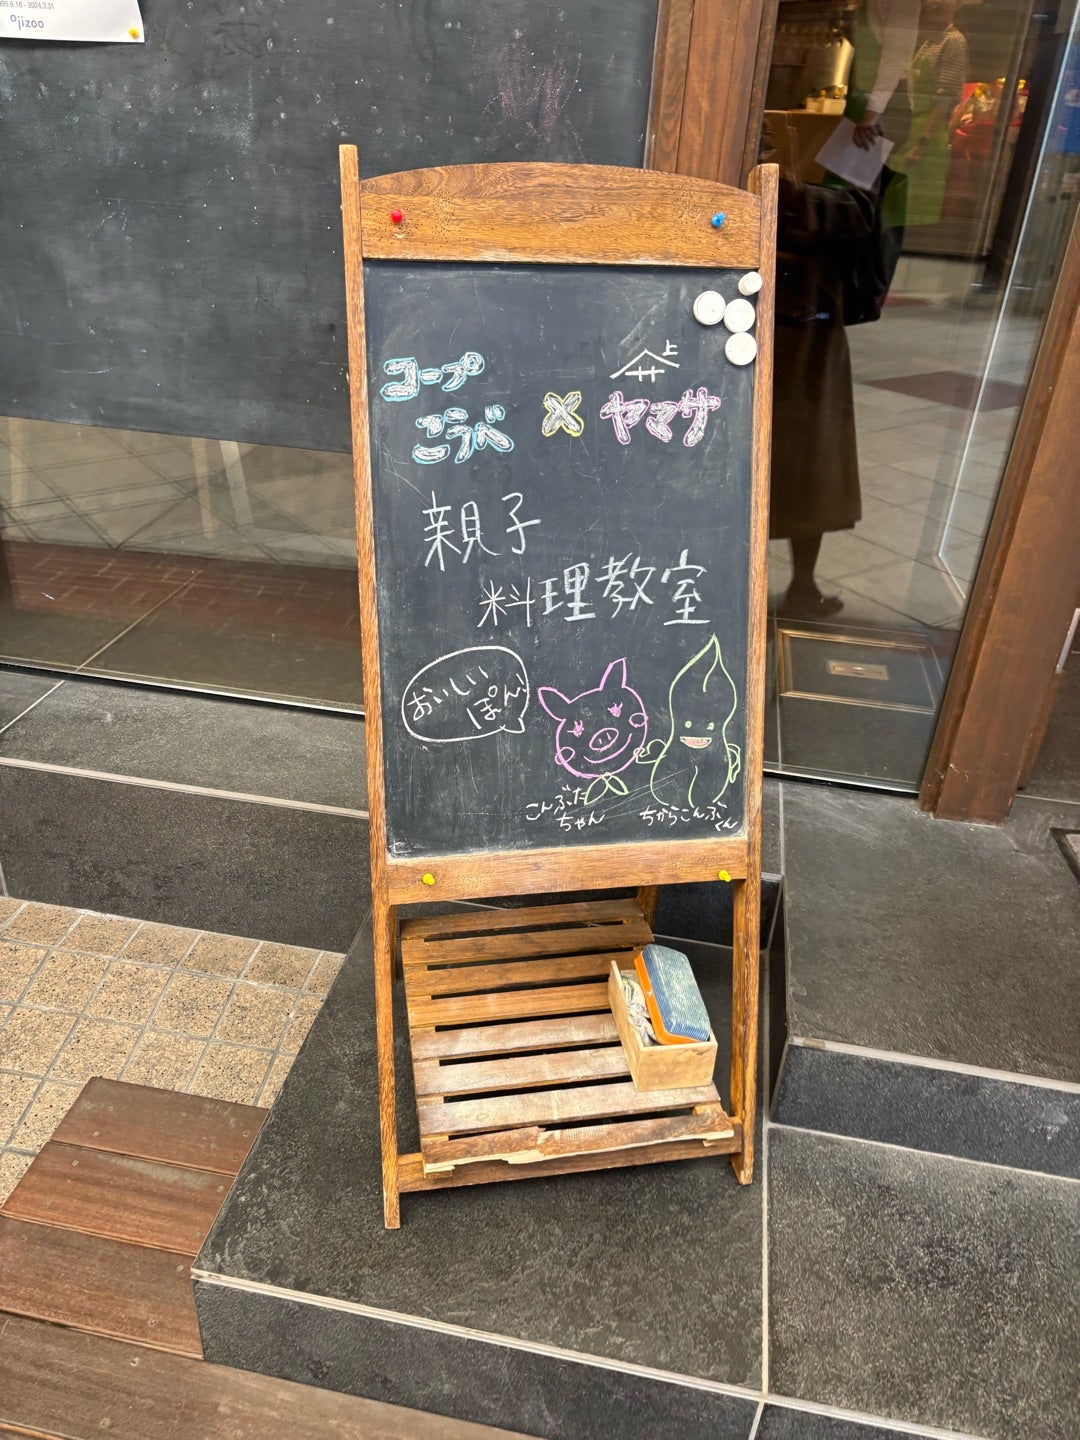 995.9.16 - 2024.3.31
ojizoo
コープ
こうべ
×
上
サ
ヤマサ
親子
料理教室
おいしい
ぽん!
こんぶた
ちゃん
ちからこんぶ
くん